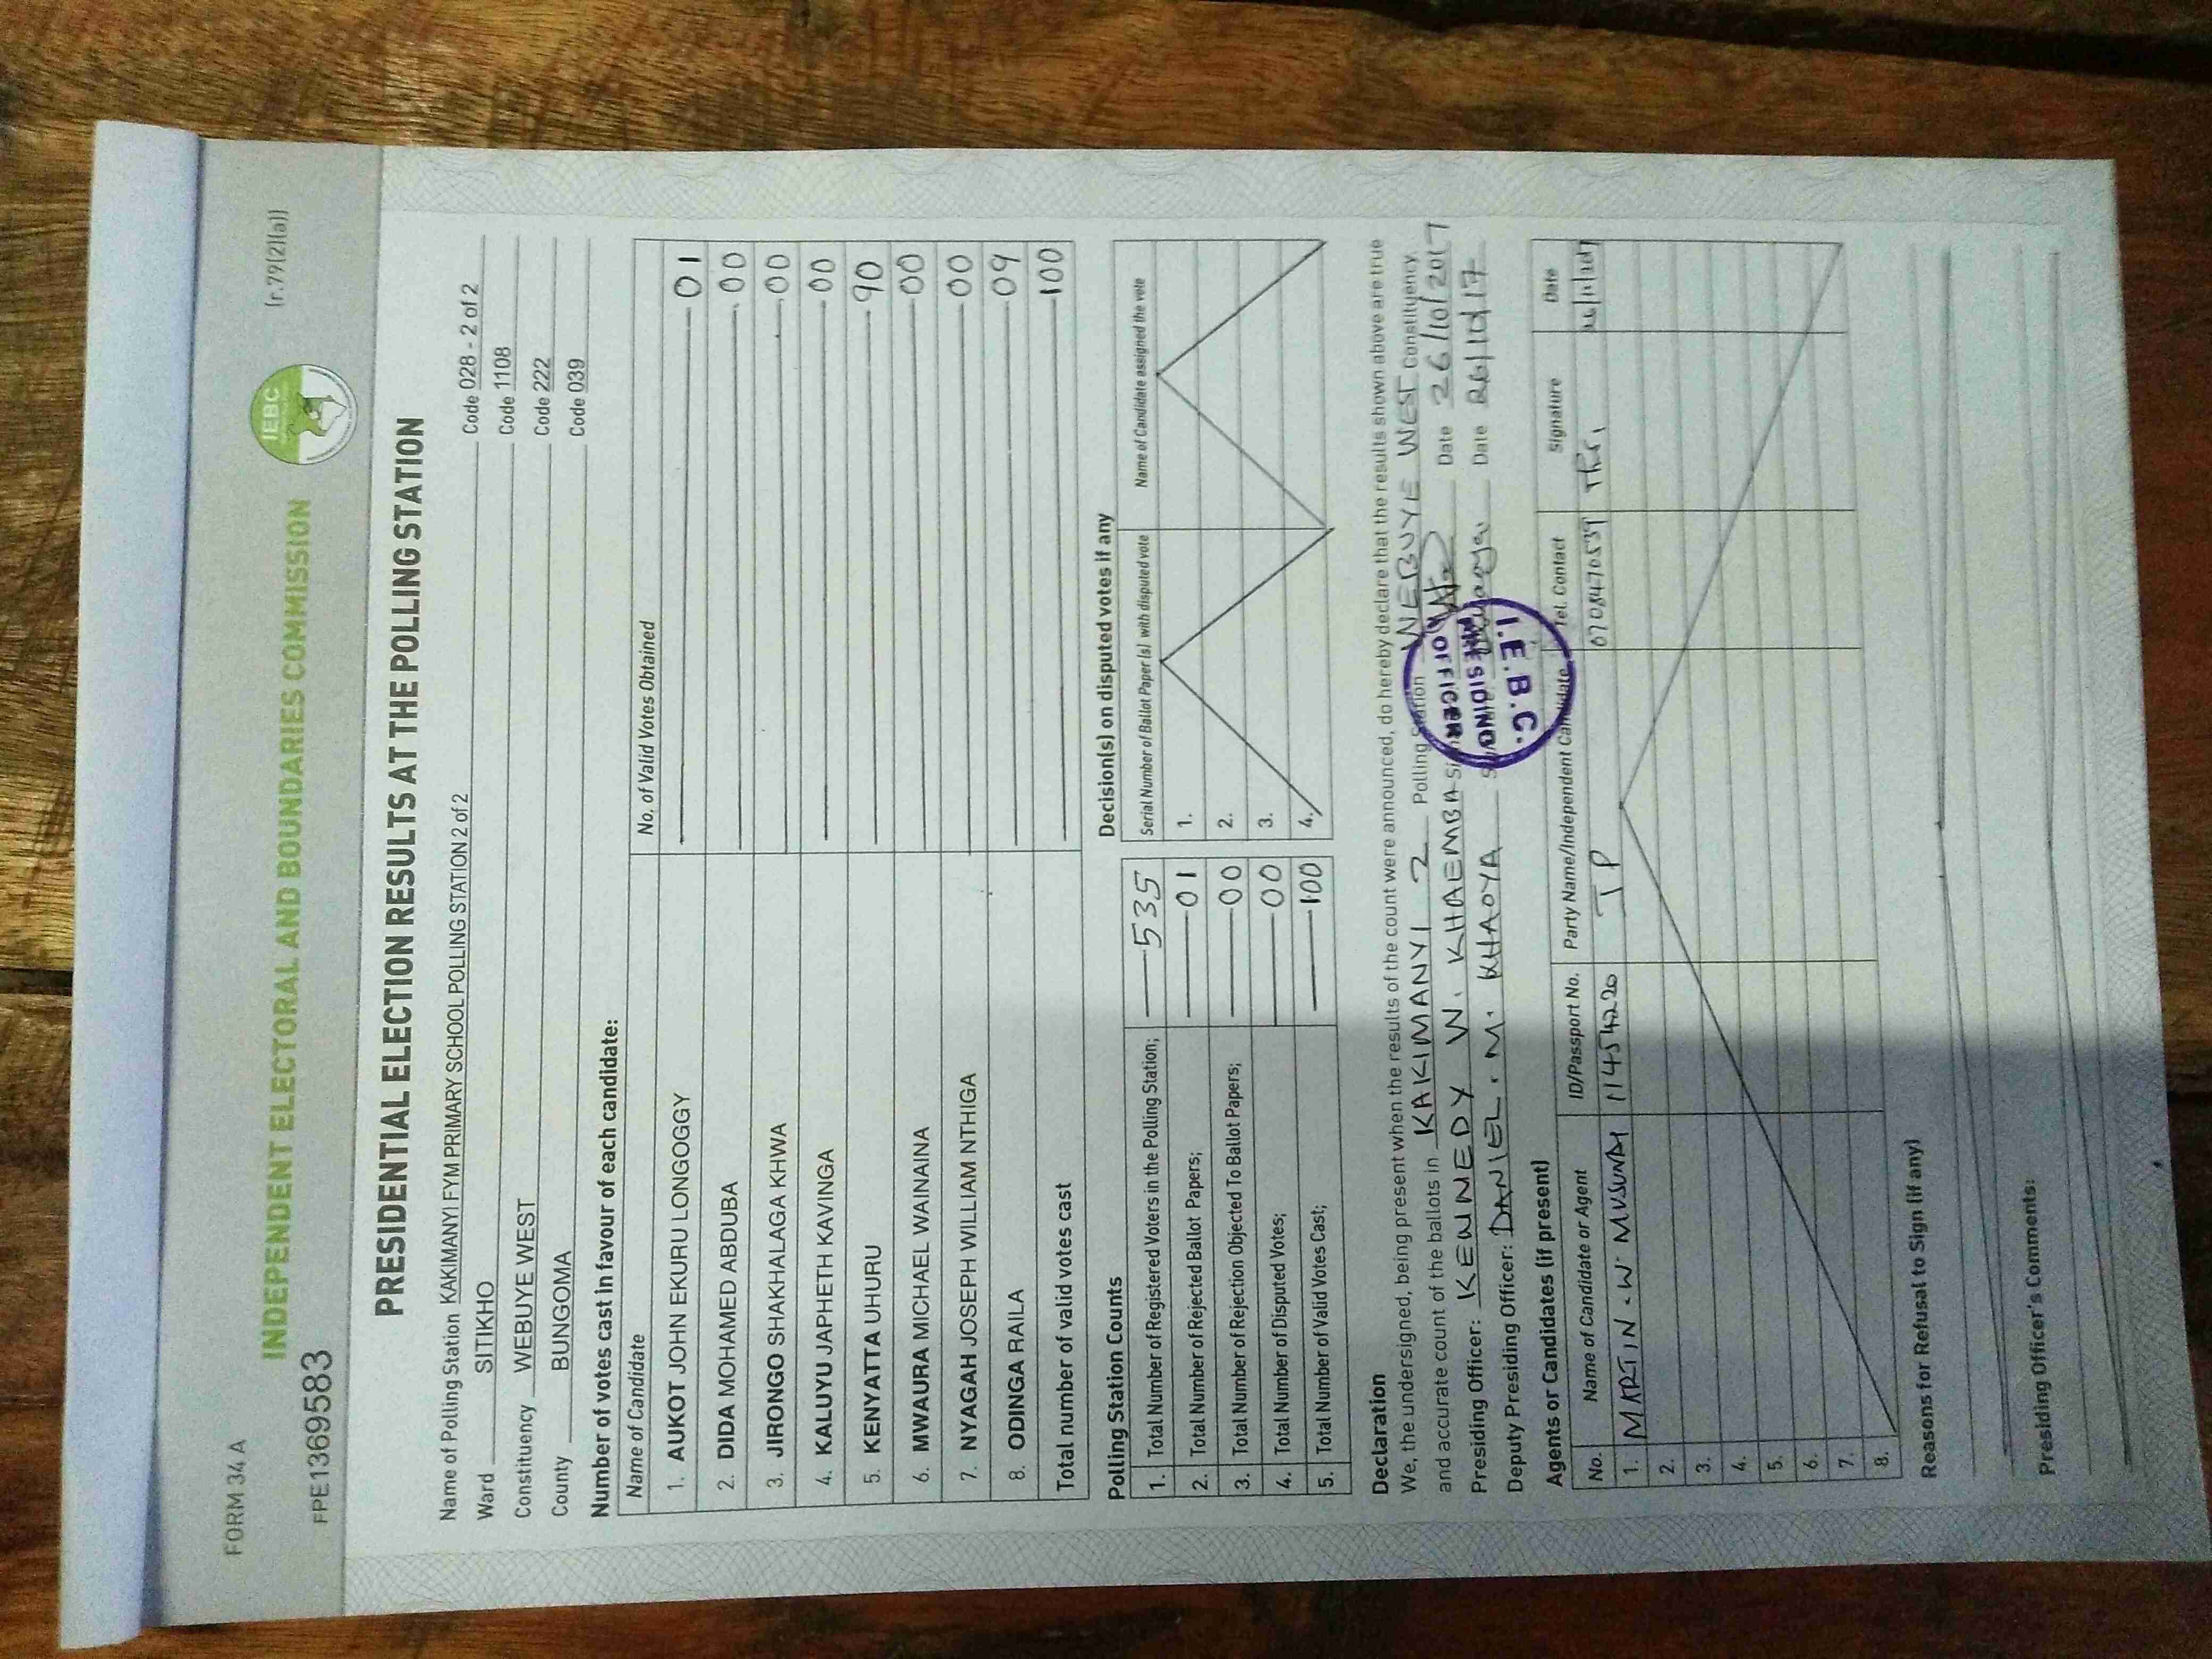 FORM 34 A
(r.79(2)(a))
INDEPENDENT ELECTORAL AND BOUNDARIES COMMISSION
IEBC
FPE1369583
PRESIDENTIAL ELECTION RESULTS AT THE POLLING STATION
Name of Polling Station KAKIMANYI FYM PRIMARY SCHOOL POLLING STATION 2 of 2 Code 028 - 2 of 2
Ward SITIKHO Code 1108
Constituency WEBUYE WEST Code 222
County BUNGOMA Code 039
Number of votes cast in favour of each candidate:
Name of Candidate No. of Valid Votes Obtained
1. AUKOT JOHN EKURU LONGOGGY 01
2. DIDA MOHAMED ABDUBA 00
3. JIRONGO SHAKHALAGA KHWA 00
4. KALUYU JAPHETH KAVINGA 00
5. KENYATTA UHURU 90
6. MWAURA MICHAEL WAINAINA 00
7. NYAGAH JOSEPH WILLIAM NTHIGA 00
8. ODINGA RAILA 09
Total number of valid votes cast 100
Polling Station Counts Decision(s) on disputed votes if any
Serial Number of Ballot Paper (s) with disputed vote Name of Candidate assigned the vote
1. Total Number of Registered Voters in the Polling Station; 535 1.
2. Total Number of Rejected Ballot Papers; 01 2.
3. Total Number of Rejection Objected To Ballot Papers; 00 3.
4. Total Number of Disputed Votes; 00 4.
5. Total Number of Valid Votes Cast; 100
Declaration
We, the undersigned, being present when the results of the count were announced, do hereby declare that the results shown above are true
and accurate count of the ballots in KAKIMANYI 2 Polling Station WEBUYE WEST Constituency.
Presiding Officer: KENNEDY W. KHAEMBA Date 26/10/2017
Deputy Presiding Officer: DANIEL. M. KHAOYA Date 26/10/17
I.E.B.C.
PRESIDING
OFFICER
Agents or Candidates (if present)
No. Name of Candidate or Agent ID/Passport No. Party Name/Independent Candidate Tel. Contact Signature Date
1. MARTIN. W. MUSUNDI 11454220 JP 0708470539
2.
3.
4.
5.
6.
7.
8.
Reasons for Refusal to Sign (if any)
Presiding Officer's Comments: